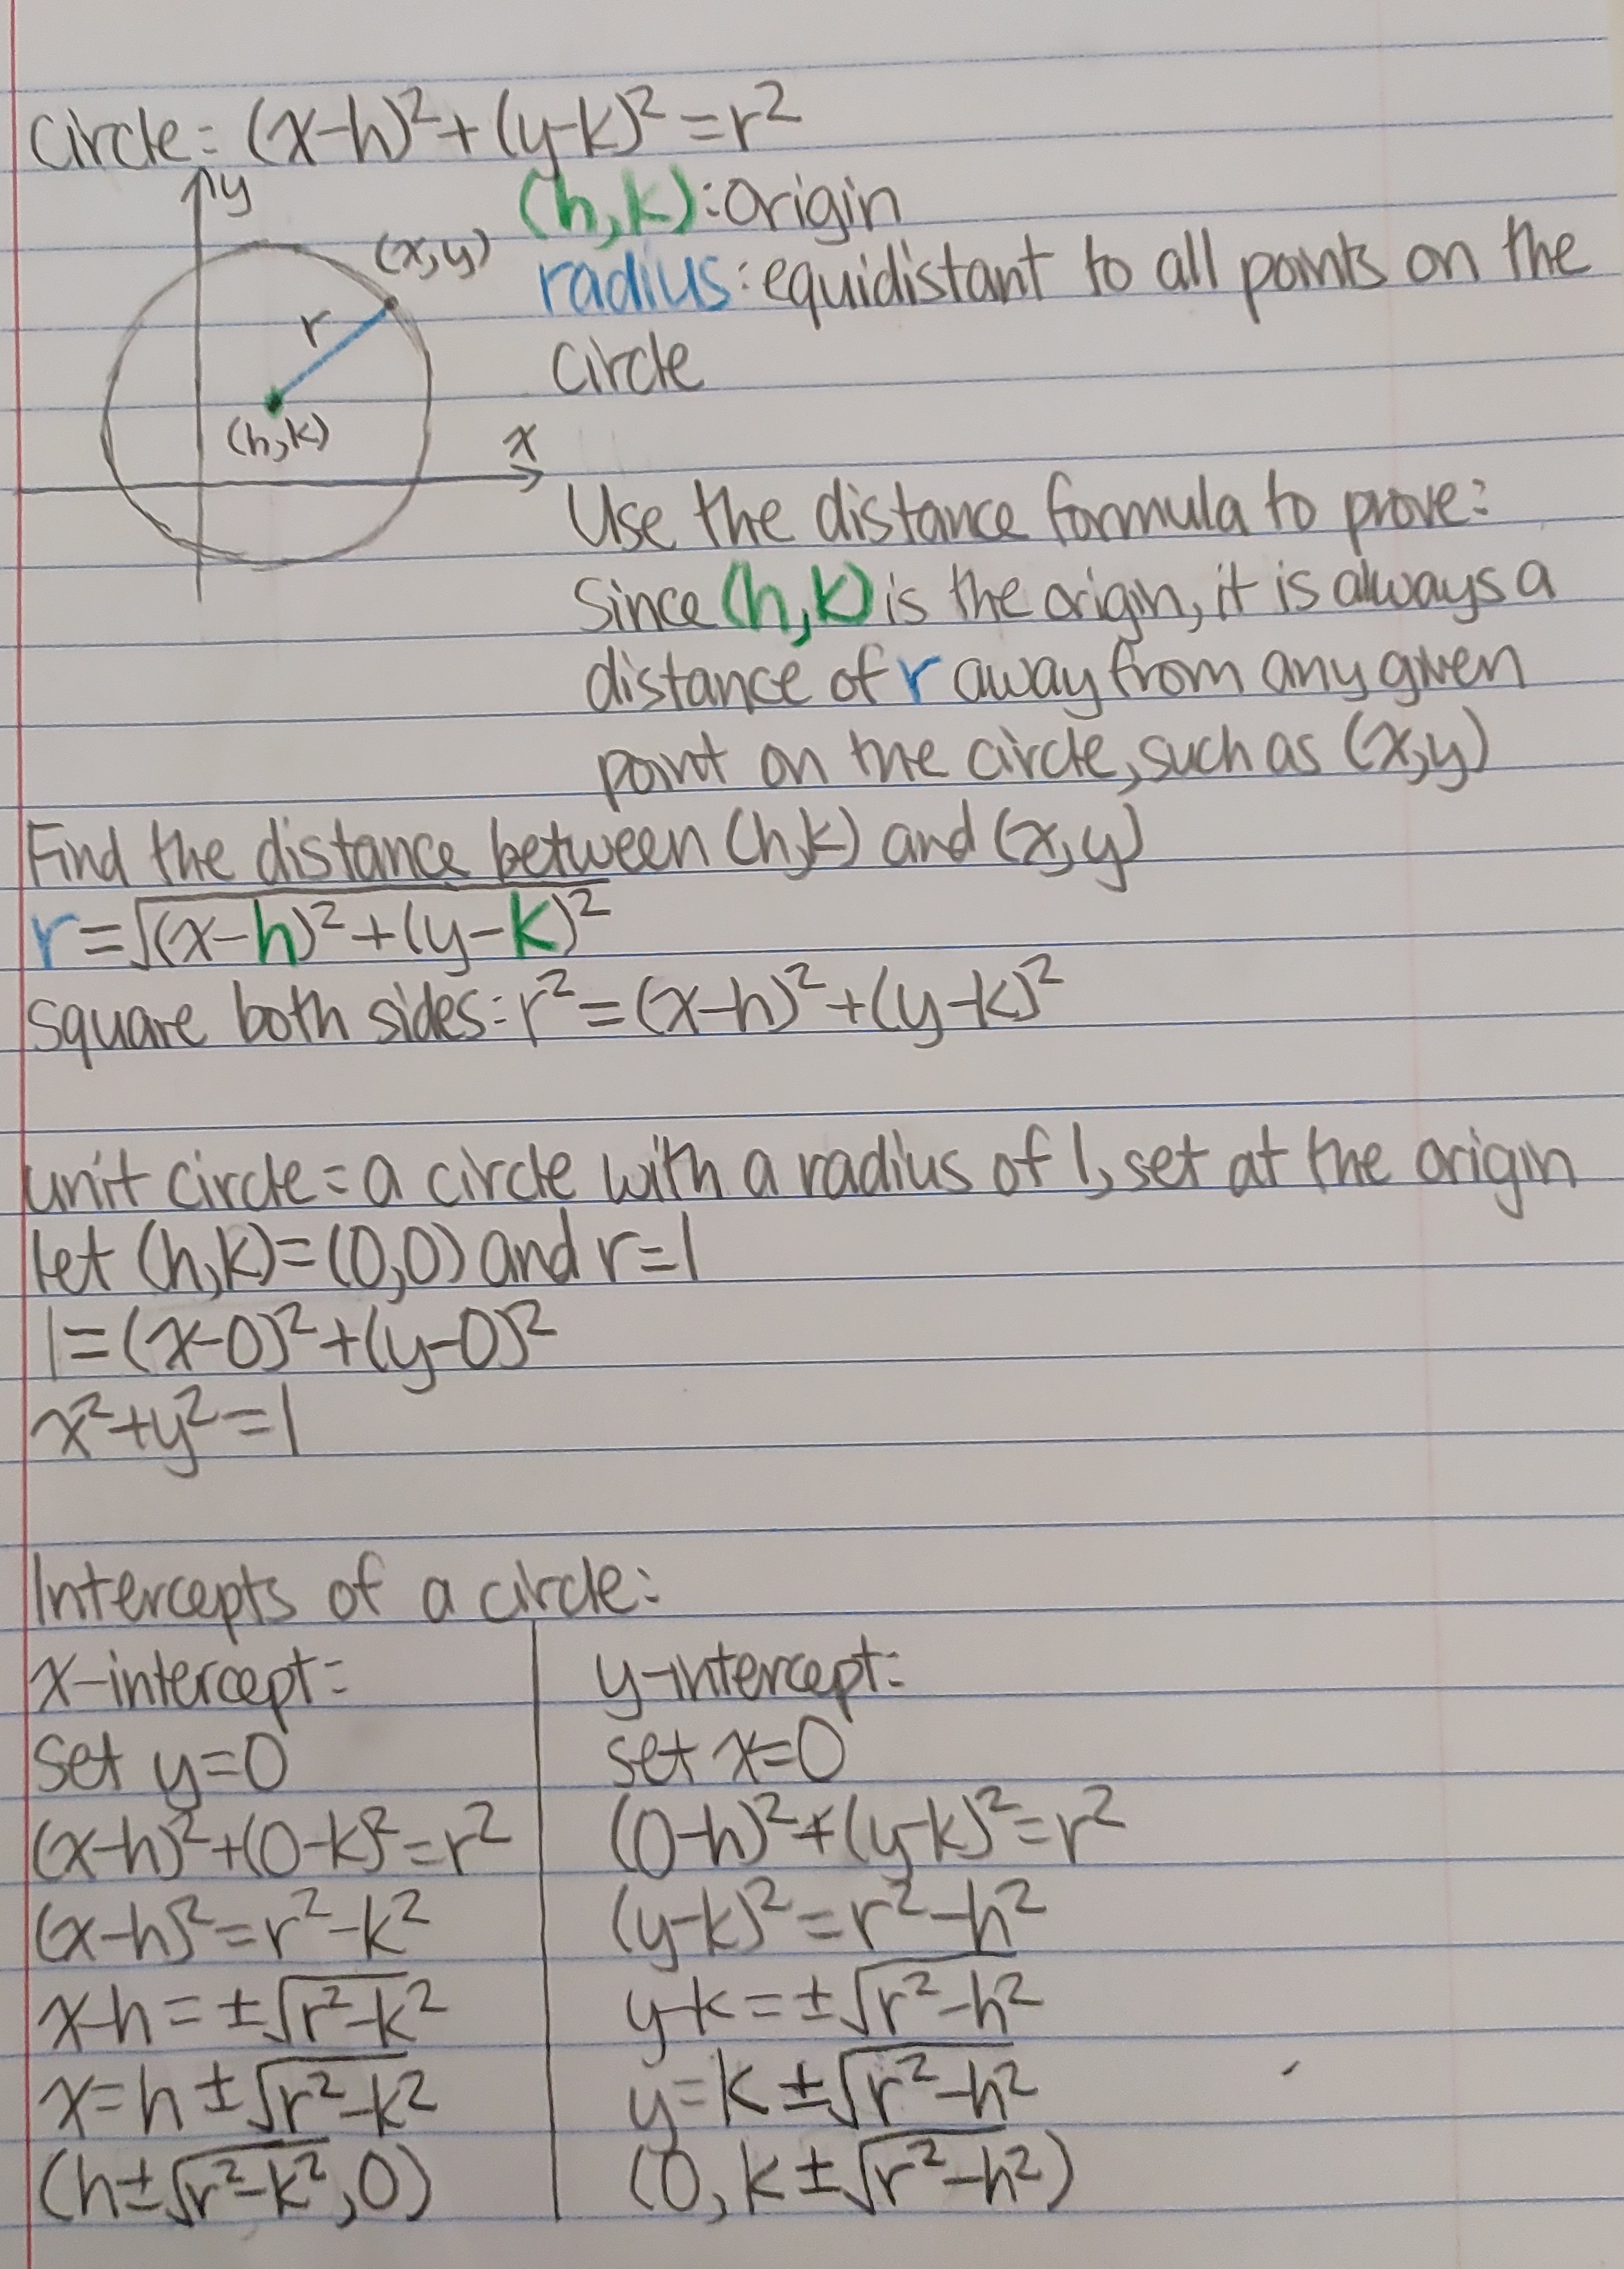 Circle: (x-h)²+(y-k)²=r²
y
(h,k): origin
(x,y)
radius: equidistant to all points on the
r
circle
(h,k)
x
Use the distance formula to prove:
Since (h,k) is the origin, it is always a
distance of r away from any given
point on the circle, such as (x,y)
Find the distance between (h,k) and (x,y)
r=√(x-h)²+(y-k)²
square both sides: r²=(x-h)²+(y-k)²
unit circle: a circle with a radius of 1, set at the origin
let (h,k)=(0,0) and r=1
1=(x-0)²+(y-0)²
x²+y²=1
Intercepts of a circle:
x-intercept:
set y=0
(x-h)²+(0-k)²=r²
(x-h)²=r²-k²
x-h=±√r²-k²
x=h±√r²-k²
(h±√r²-k²,0)
y-intercept:
set x=0
(0-h)²+(y-k)²=r²
(y-k)²=r²-h²
y-k=±√r²-h²
y=k±√r²-h²
(0, k±√r²-h²)